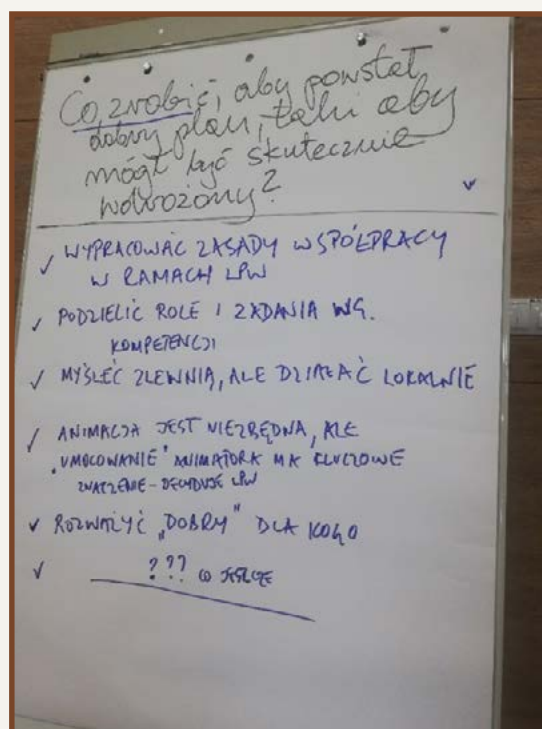 Co zrobić, aby powstał
dobry plan, taki aby
mógł być skutecznie
wdrożony?
✓
✓ WYPRACOWAĆ ZASADY WSPÓŁPRACY
W RAMACH LPW
✓ PODZIELIĆ ROLE I ZADANIA WG.
KOMPETENCJI
✓ MYŚLEĆ ZLEWNIĄ, ALE DZIAŁAĆ LOKALNIE
✓ ANIMACJA JEST NIEZBĘDNA, ALE
„UMOCOWANIE” ANIMATORA MA KLUCZOWE
ZNACZENIE - DECYDUJE LPW
✓ ROZWAŻYĆ „DOBRY” DLA KOGO
✓ ??? CO JESZCZE